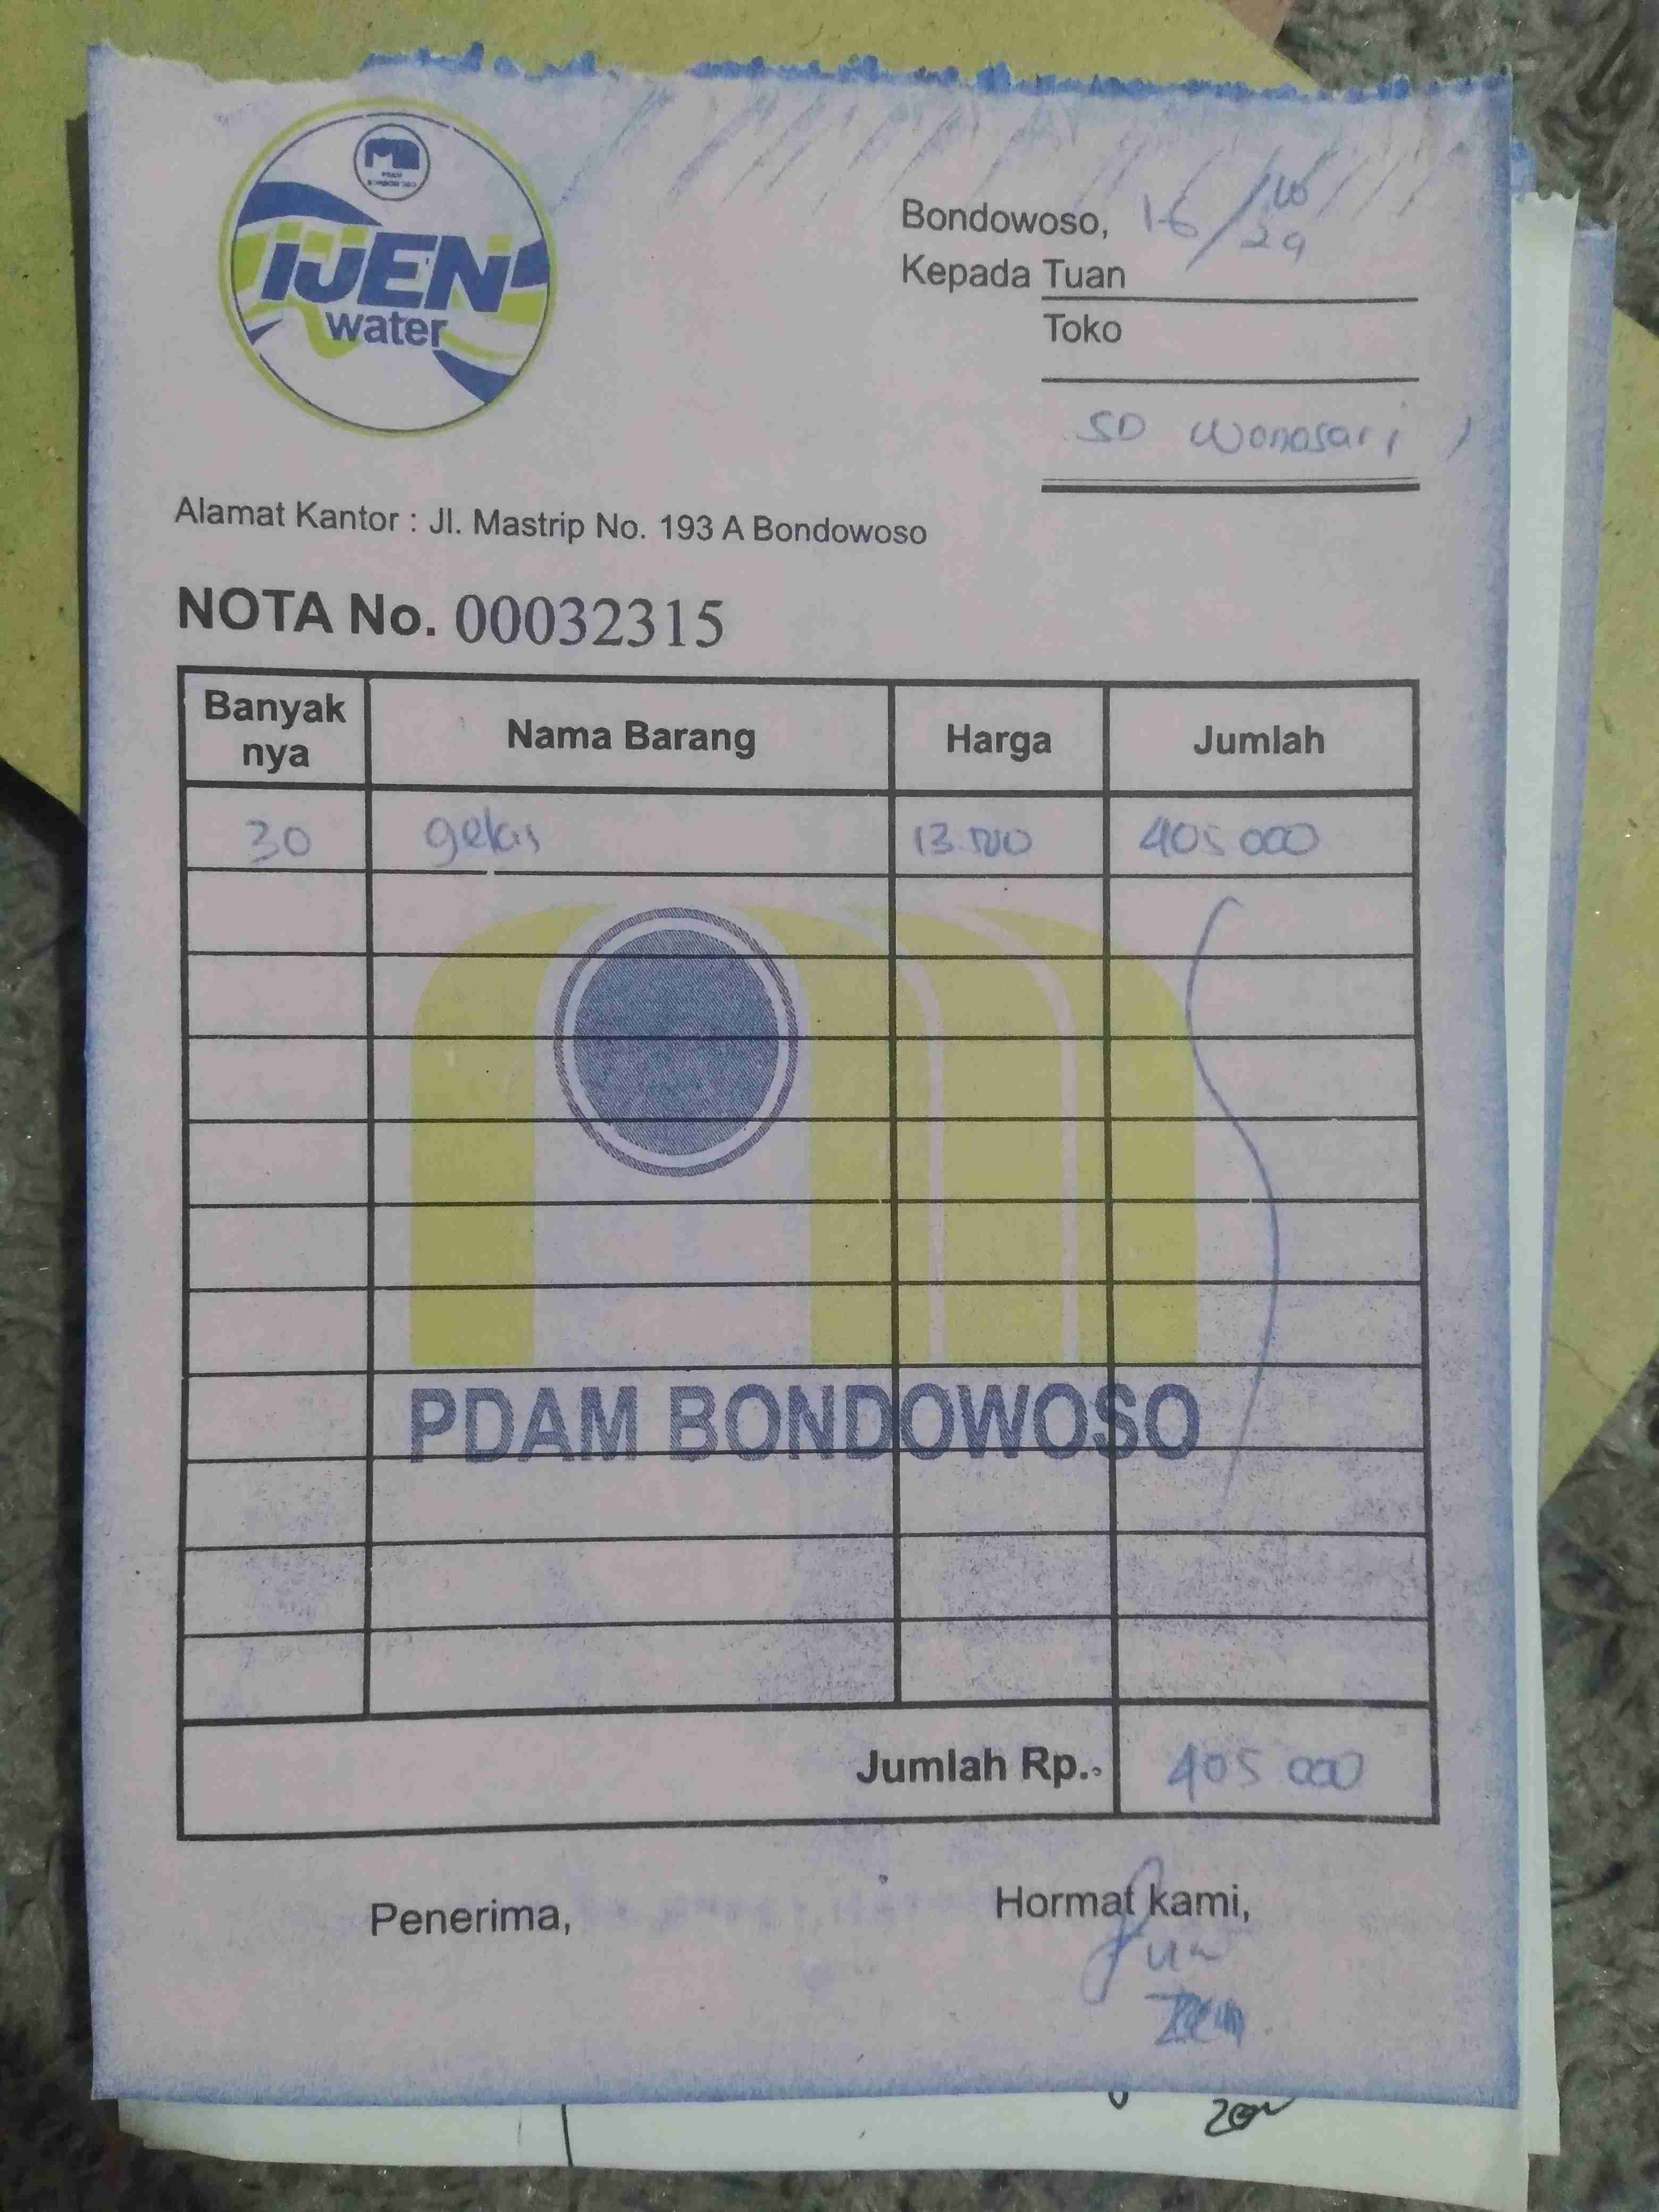 PDAM
BONDOWOSO
IJEN
water
Bondowoso, 16/10 24
Kepada Tuan
Toko
SD Wonosari 1
Alamat Kantor : Jl. Mastrip No. 193 A Bondowoso
NOTA No. 00032315
Banyak nya Nama Barang Harga Jumlah
30 gelas 13.500 405 000
PDAM BONDOWOSO
Jumlah Rp.. 405 000
Penerima, Hormat kami,